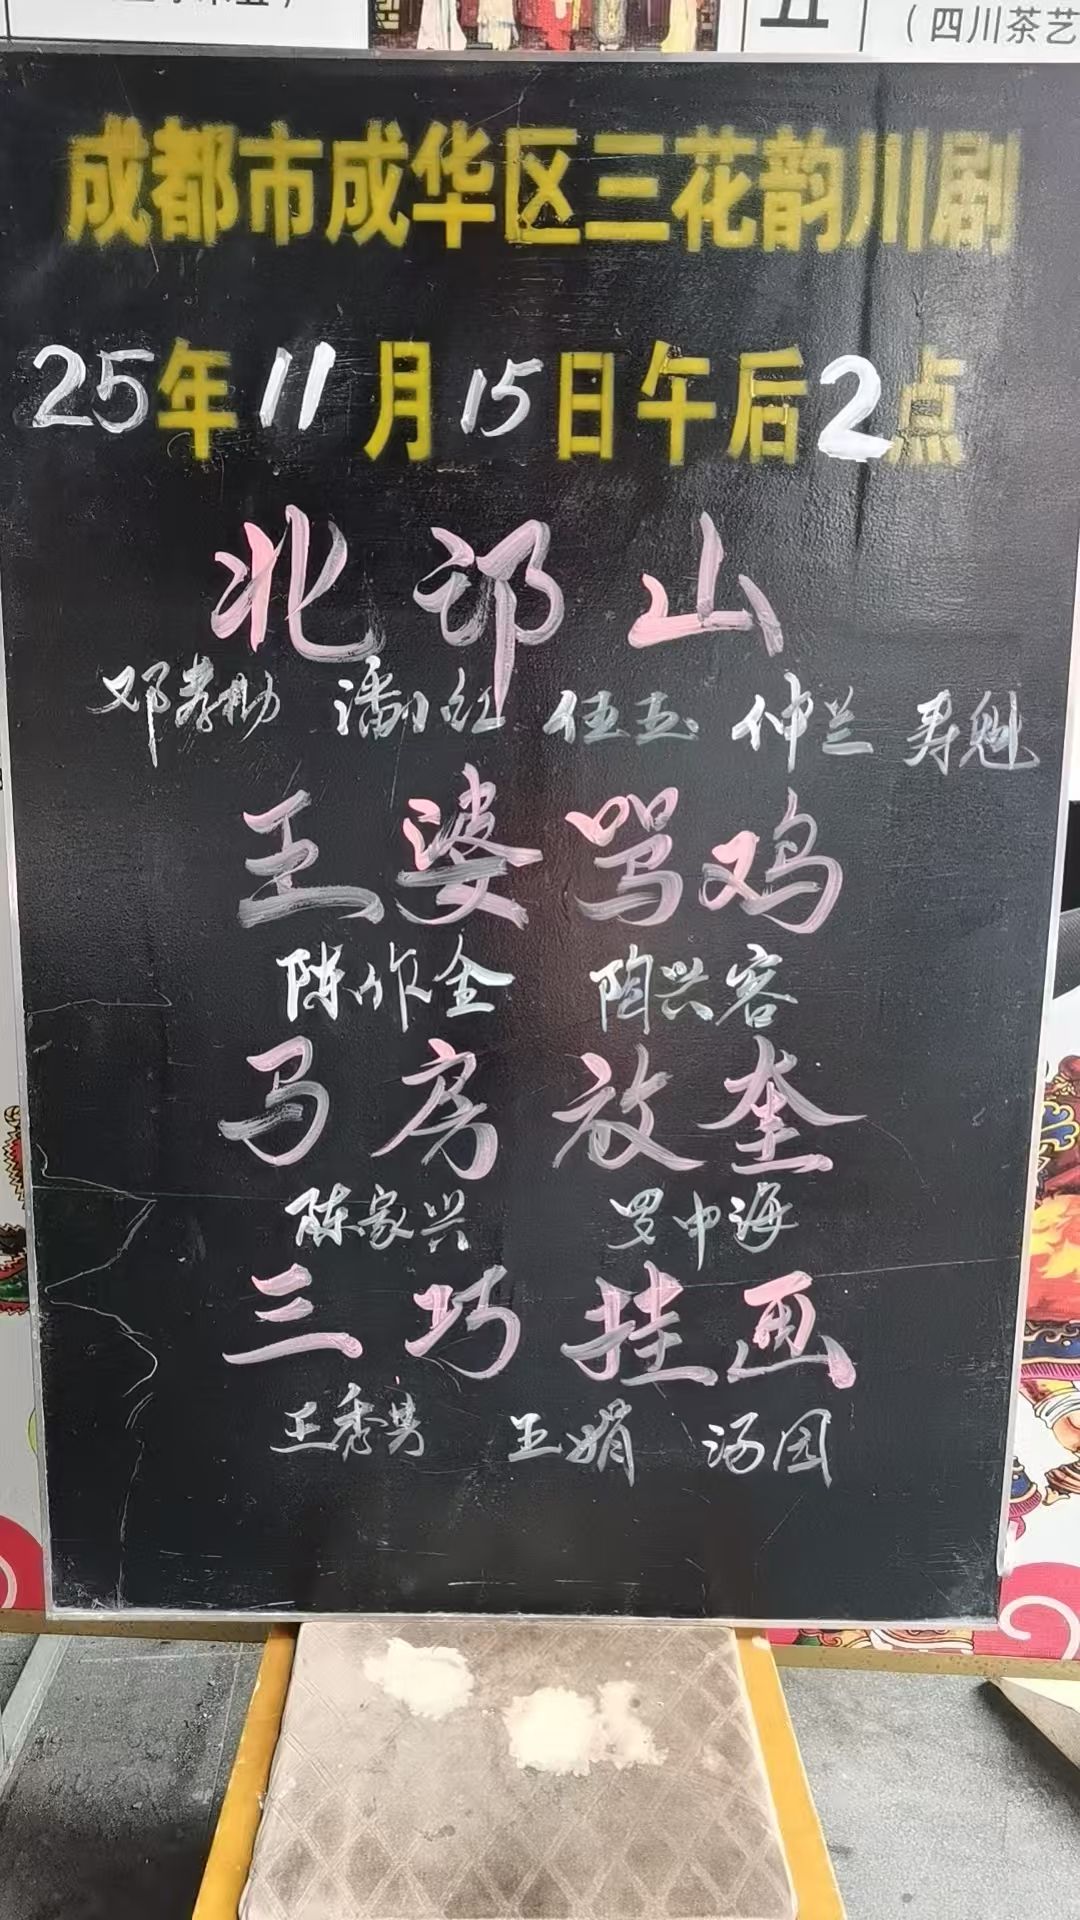 五
（四川茶艺
成都市成华区三花韵川剧
25年11月15日午后2点
北邙山
邓孝勋 潘小红 伍玉 仲兰 寿魁
王婆骂鸡
陈作全 陶兴容
马房放奎
陈家兴 罗中海
三巧挂画
王秀男 王娟 汤园